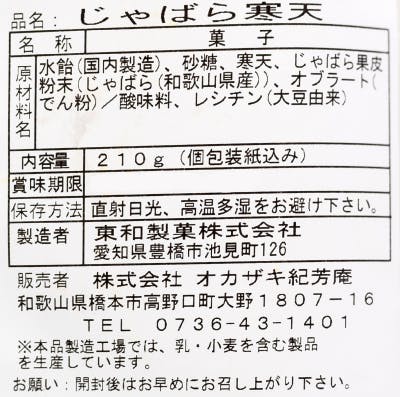 品名：じゃばら寒天
名称 菓子
原材料名 水飴(国内製造)、砂糖、寒天、じゃばら果皮
粉末(じゃばら(和歌山県産))、オブラート(
でん粉)／酸味料、レシチン(大豆由来)
内容量 210g (個包装紙込み)
賞味期限
保存方法 直射日光、高温多湿をお避け下さい。
製造者 東和製菓株式会社
愛知県豊橋市池見町126
販売者 株式会社 オカザキ紀芳庵
和歌山県橋本市高野口町大野1807-16
TEL 0736-43-1401
※本品製造工場では、乳・小麦を含む製品
を生産しています。
お願い：開封後はお早めにお召し上がり下さい。